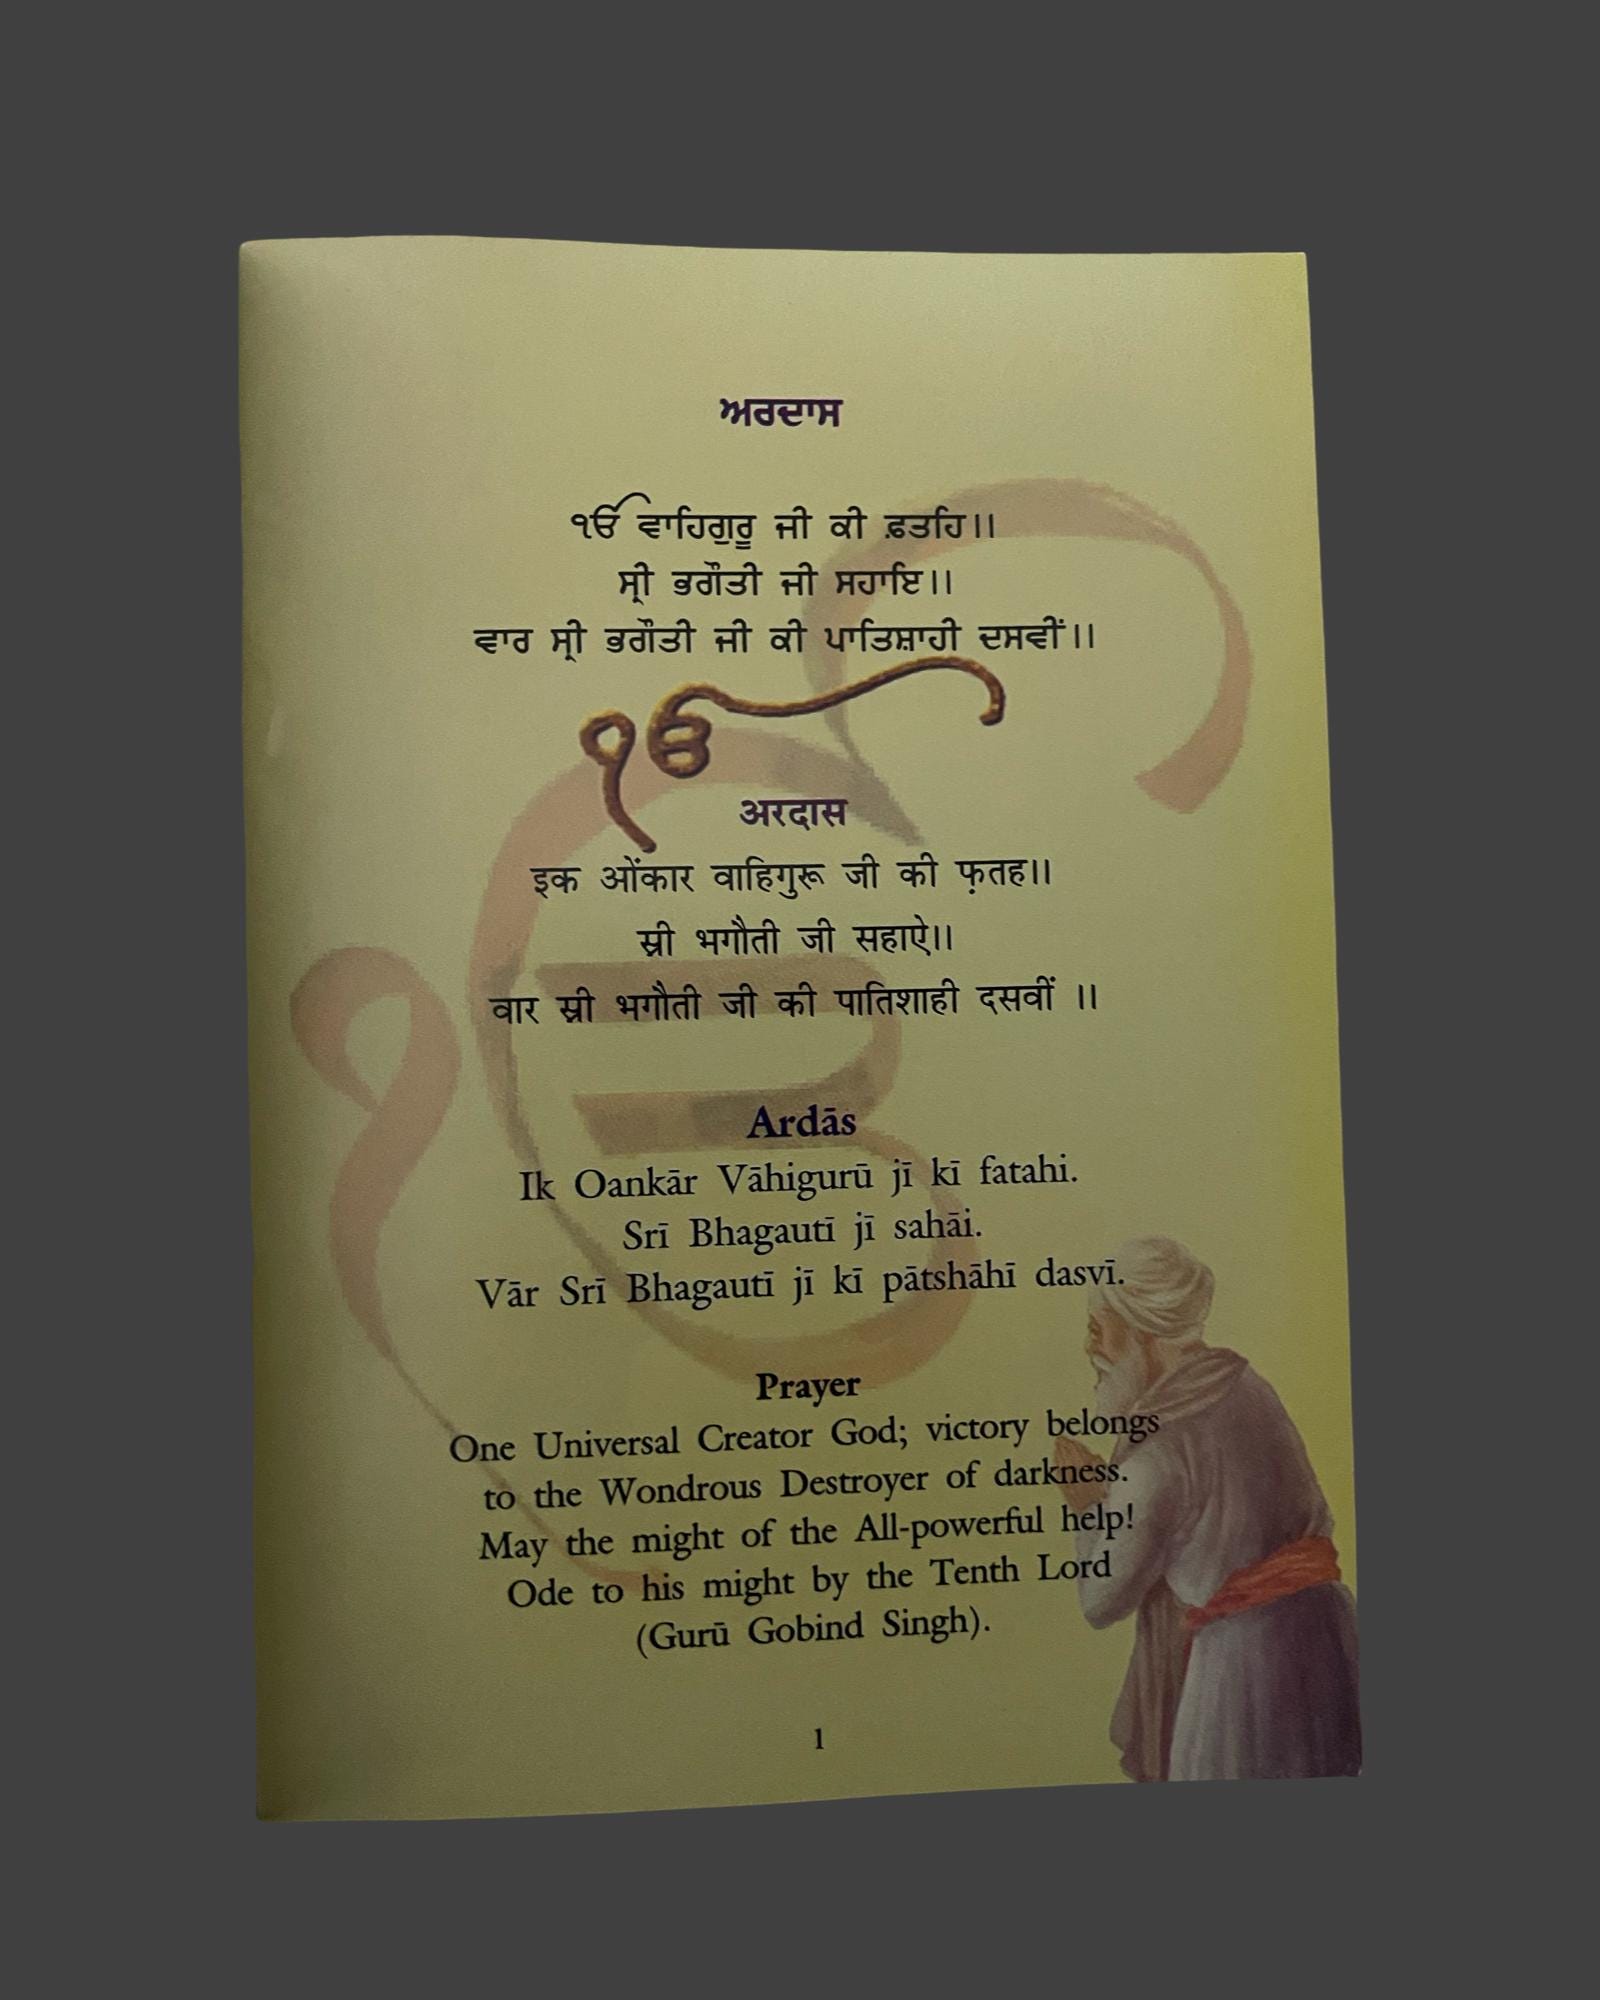 ਅਰਦਾਸ
ੴ ਵਾਹਿਗੁਰੂ ਜੀ ਕੀ ਫ਼ਤਹਿ।।
ਸ੍ਰੀ ਭਗੌਤੀ ਜੀ ਸਹਾਇ।।
ਵਾਰ ਸ੍ਰੀ ਭਗੌਤੀ ਜੀ ਕੀ ਪਾਤਿਸ਼ਾਹੀ ਦਸਵੀਂ।।
ੴ
अरदास
इक ओंकार वाहिगुरू जी की फ़तह।।
स्री भगौती जी सहाऐ।।
वार स्री भगौती जी की पातिशाही दसवीं ।।
Ardās
Ik Oankār Vāhigurū jī kī fatahi.
Srī Bhagautī jī sahāi.
Vār Srī Bhagautī jī kī pātshāhī dasvī.
Prayer
One Universal Creator God; victory belongs
to the Wondrous Destroyer of darkness.
May the might of the All-powerful help!
Ode to his might by the Tenth Lord
(Gurū Gobind Singh).
1